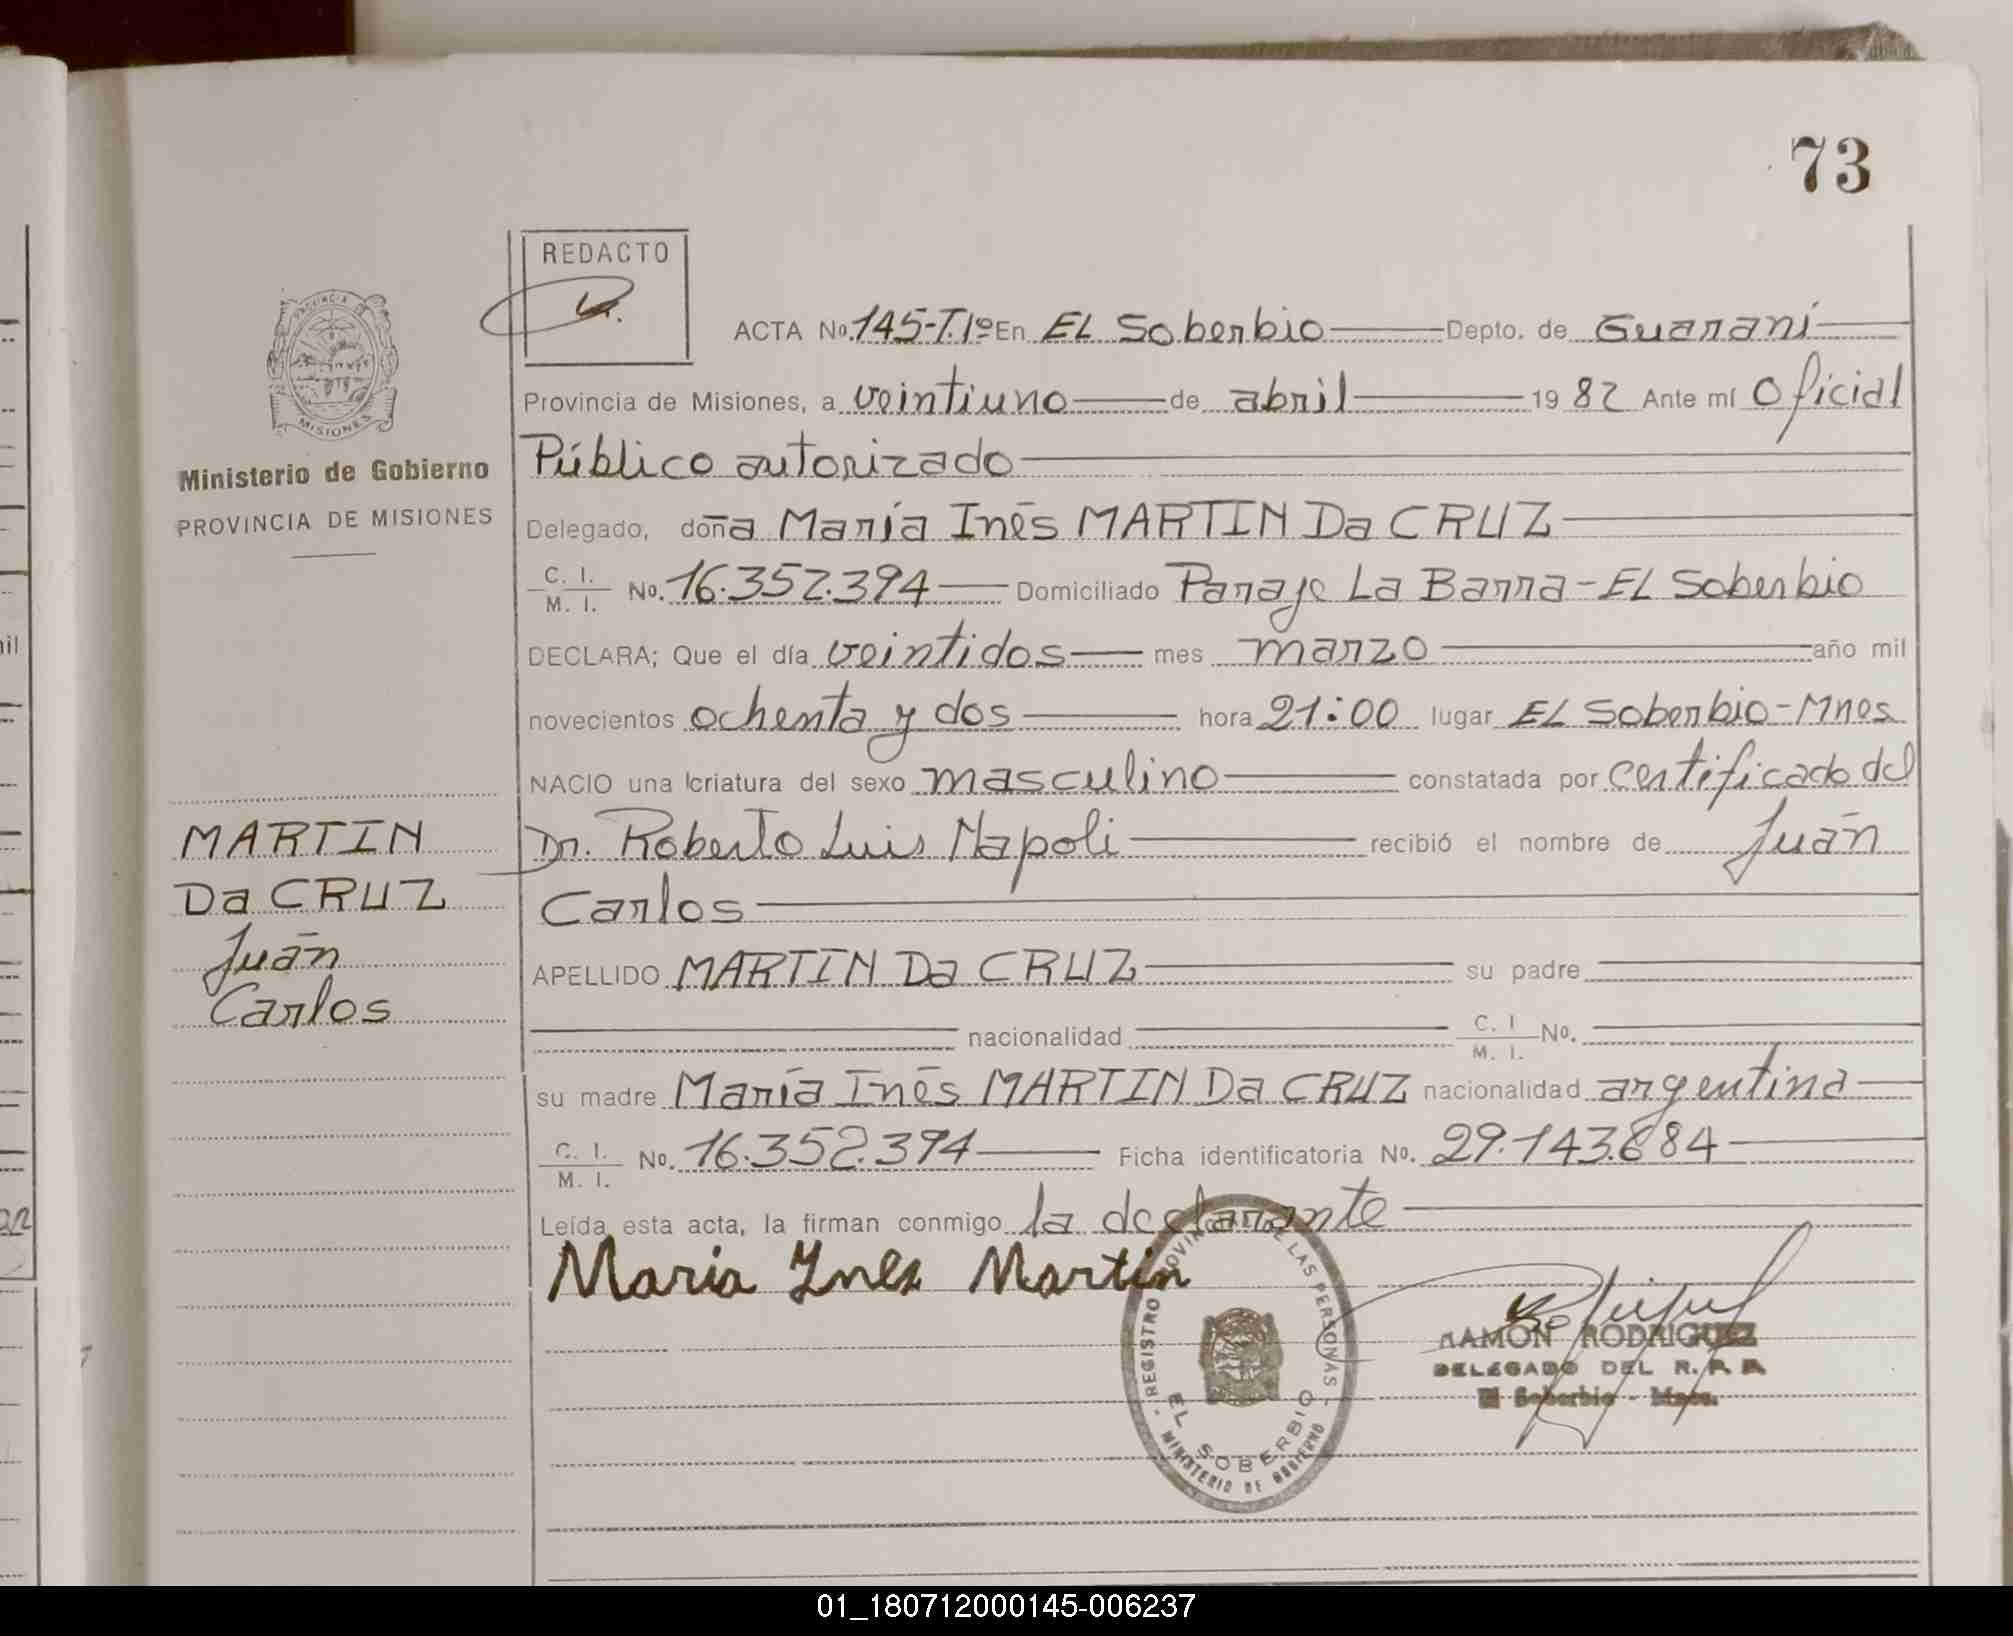 73
REDACTO
ACTA No. 145-T.1º En EL Soberbio Depto. de Guaraní
Provincia de Misiones, a veintiuno de abril 1982 Ante mí Oficial
Público autorizado
Delegado, doña María Inés MARTIN Da CRUZ
C. I. / M. I. No. 16.352.394 Domiciliado Paraje La Barra - EL Soberbio
DECLARA; Que el día veintidos mes marzo año mil
novecientos ochenta y dos hora 21:00 lugar EL Soberbio - Mnes
NACIO una criatura del sexo masculino constatada por certificado del
Dr. Roberto Luis Napoli recibió el nombre de Juán
Carlos
APELLIDO MARTIN Da CRUZ su padre
nacionalidad C. I / M. I. No.
su madre María Inés MARTIN Da CRUZ nacionalidad argentina
C. I. / M. I. No. 16.352.394 Ficha identificatoria No. 29.143.684
Leída esta acta, la firman conmigo la declarante
Maria Ynes Martin
RAMON RODRIGUEZ
DELEGADO DEL R. P. P.
El Soberbio - Mnes.
REGISTRO PROVINCIAL DE LAS PERSONAS
EL SOBERBIO
MINISTERIO DE GOBIERNO
PROVINCIA DE
MISIONES
Ministerio de Gobierno
PROVINCIA DE MISIONES
MARTIN
Da CRUZ
Juán
Carlos
01_180712000145-006237